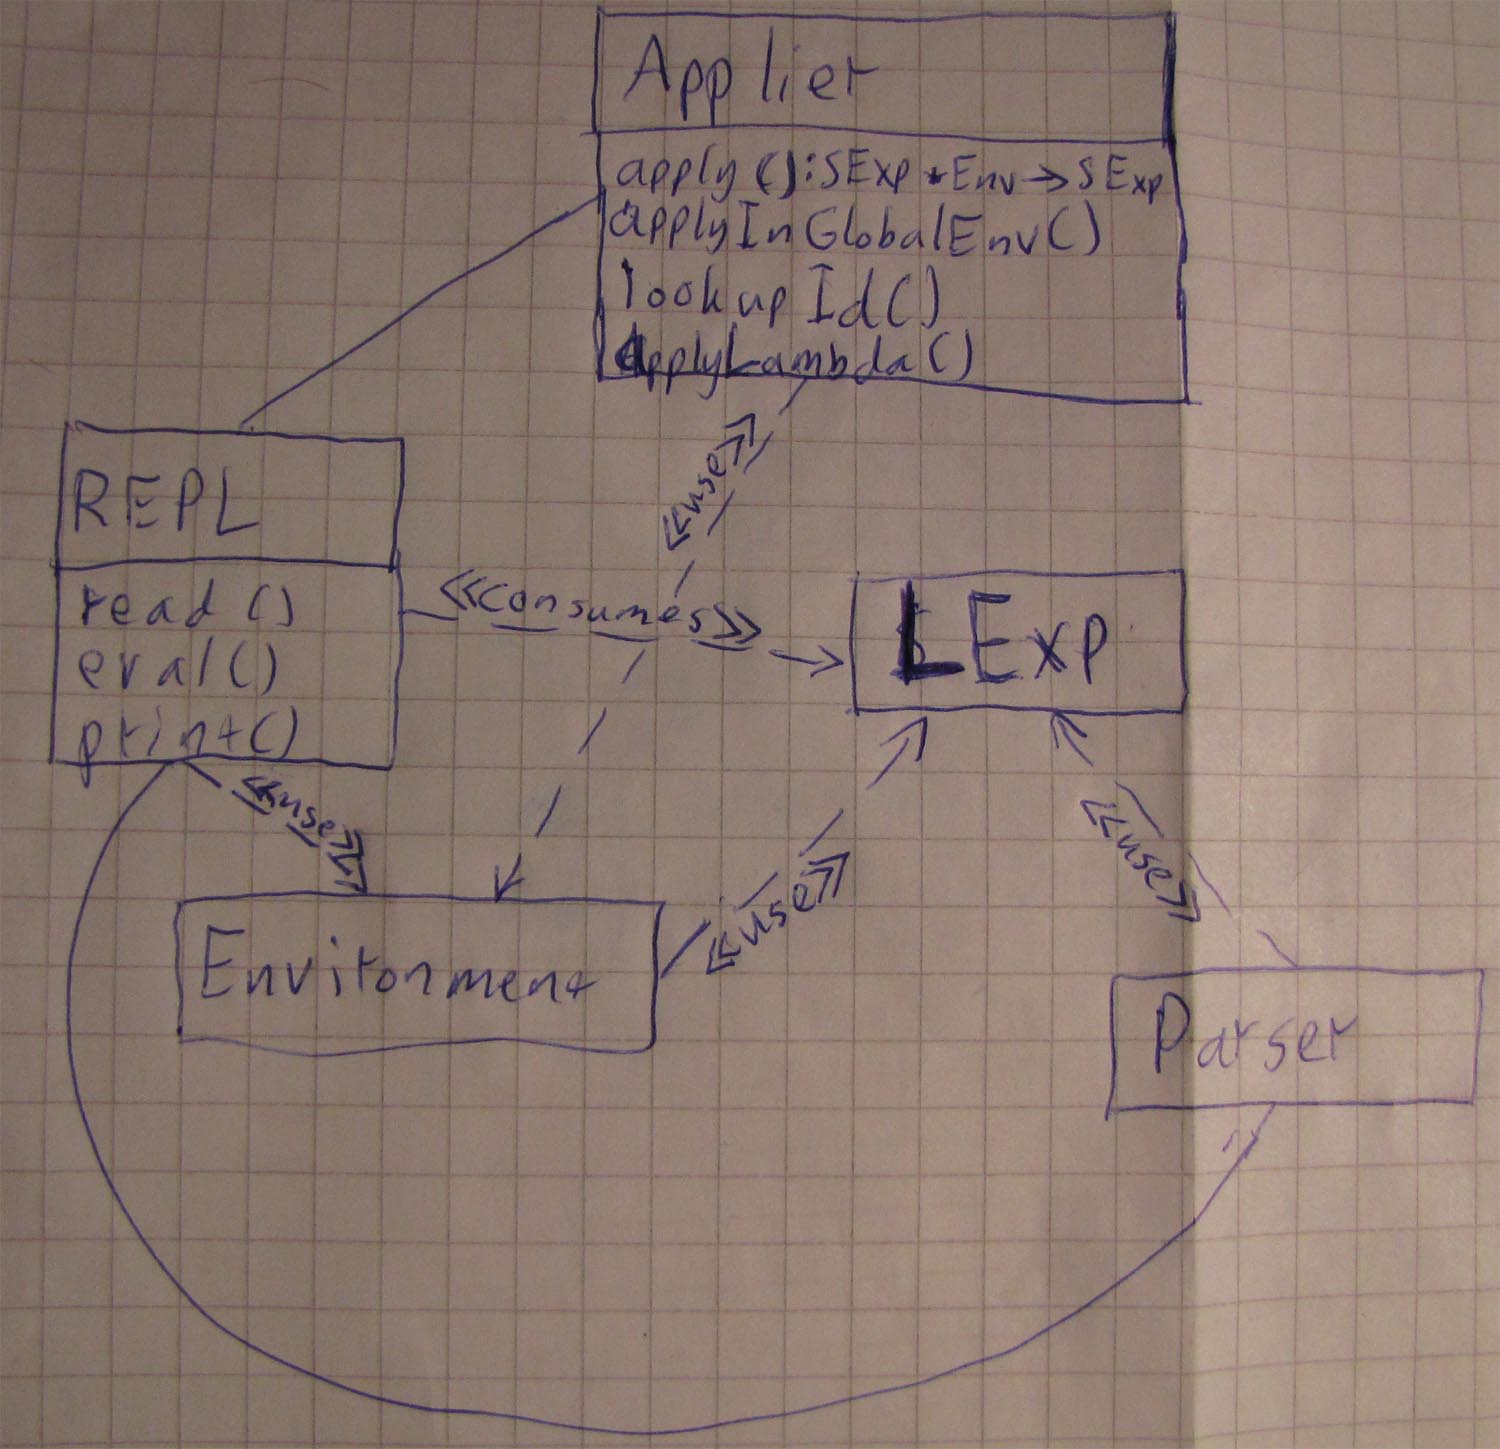 Applier
apply():SExp*Env→SExp
applyInGlobalEnv()
lookupId()
applyLambda()
«use»
REPL
read()
eval()
print()
«consumes»
LExp
«use»
«use»
«use»
Environment
Parser